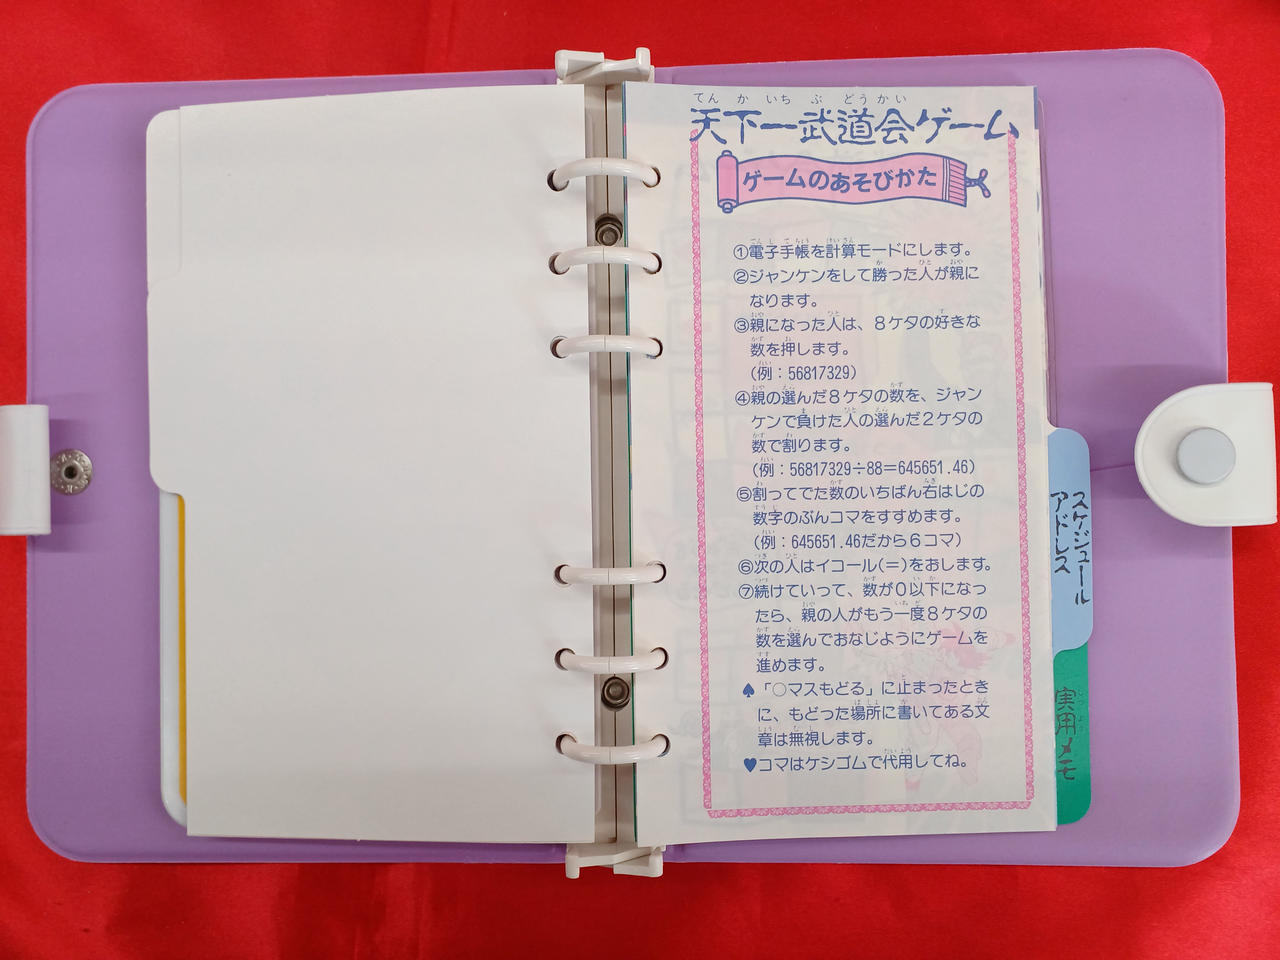 天下一武道会ゲーム
ゲームのあそびかた
①電子手帳を計算モードにします。
②ジャンケンをして勝った人が親に
なります。
③親になった人は、8ケタの好きな
数を押します。
(例：56817329)
④親の選んだ8ケタの数を、ジャン
ケンで負けた人の選んだ2ケタの
数で割ります。
(例：56817329÷88＝645651.46)
⑤割ってでた数のいちばん右はじの
数字のぶんコマをすすめます。
(例：645651.46だから6コマ)
⑥次の人はイコール(＝)をおします。
⑦続けていって、数が0以下になっ
たら、親の人がもう一度8ケタの
数を選んでおなじようにゲームを
進めます。
♠「○マスもどる」に止まったとき
に、もどった場所に書いてある文
章は無視します。
♥コマはケシゴムで代用してね。
スケジュール
アドレス
実用メモ